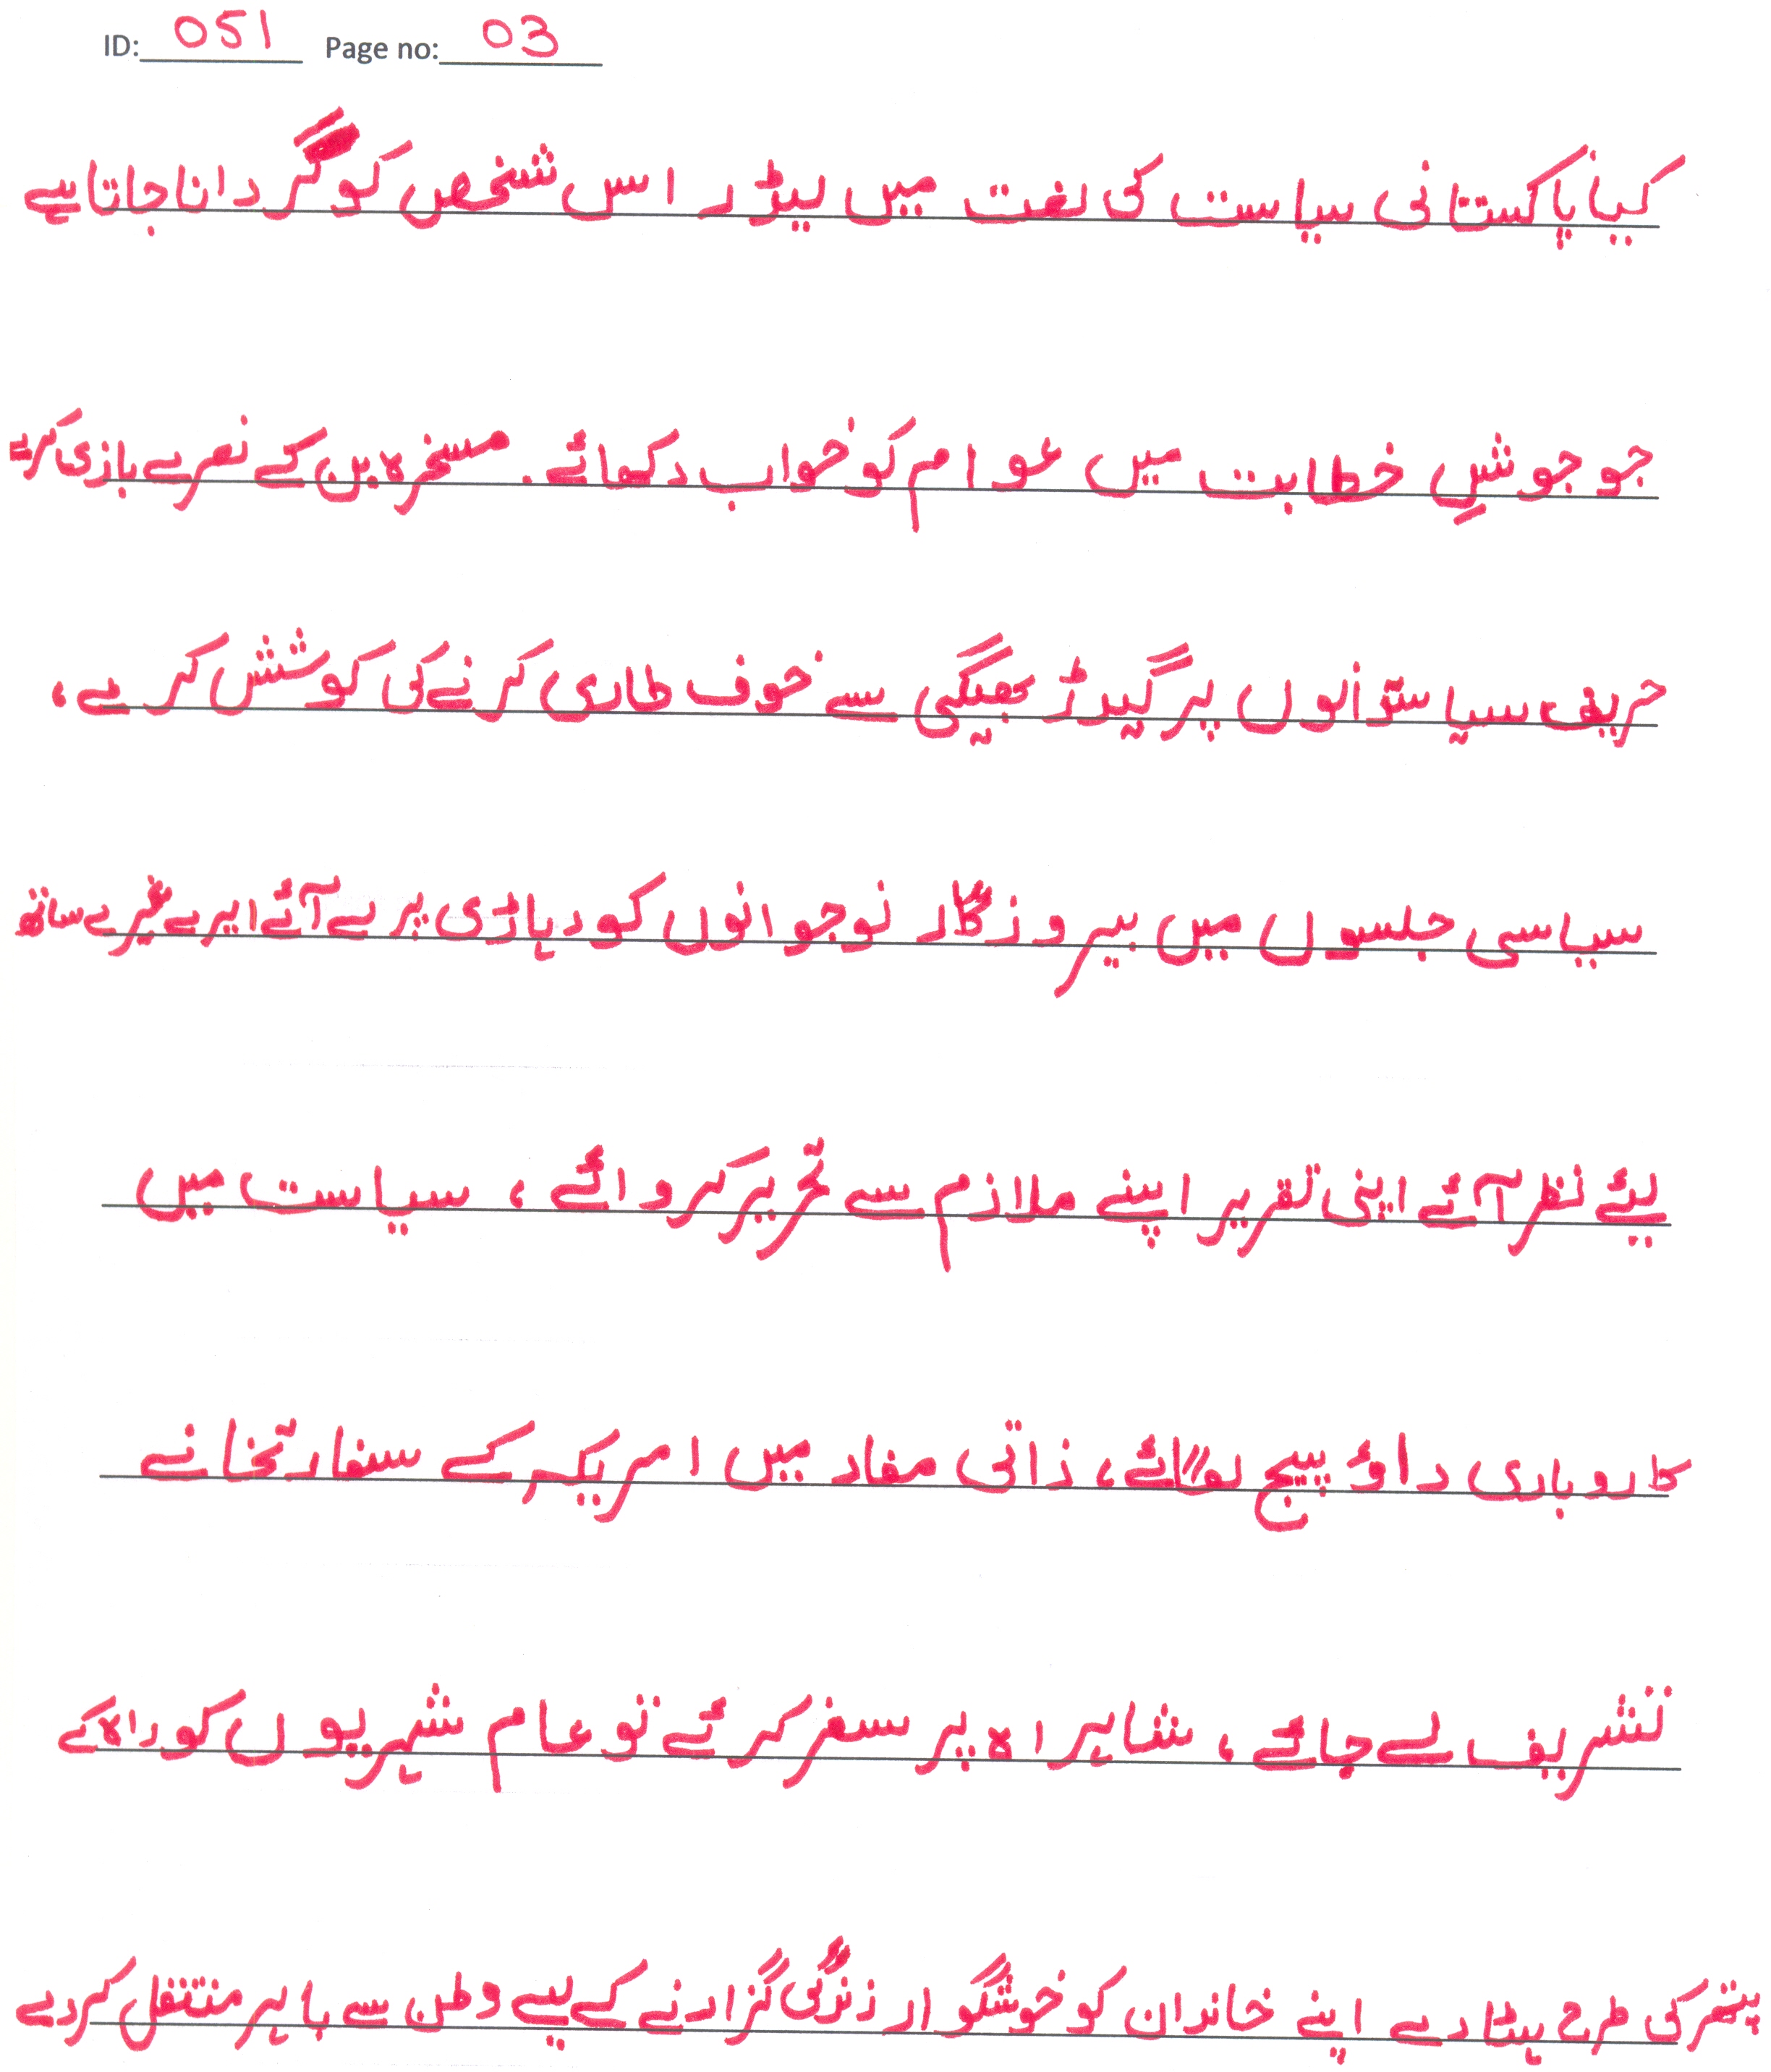 ID: 051 Page no: 03
کیا پاکستانی سیاست کی لغت میں لیڈر اس شخص کو گردانا جاتا ہے
جو جوشِ خطابت میں عوام کو خواب دکھائے۔ مسخرہ بن کے نعرے بازی کرے
حریف سیاستدانوں پر گیدڑ بھبکی سے خوف طاری کرنے کی کوشش کرے،
سیاسی جلسوں میں بیروزگار نوجوانوں کو دہاڑی پر لے آئے ایرے غیرے ساتھ
لئے نظر آئے اپنی تقریر اپنے ملازم سے تحریر کروائے، سیاست میں
کاروباری داؤ پیچ لگائے، ذاتی مفاد میں امریکہ کے سفارتخانے
تشریف لے جائے، شاہراہ پر سفر کرئے تو عام شہریوں کو راہ کے
پتھر کی طرح ہٹا دے اپنے خاندان کو خوشگوار زندگی گزارنے کے لیے وطن سے باہر منتقل کردے